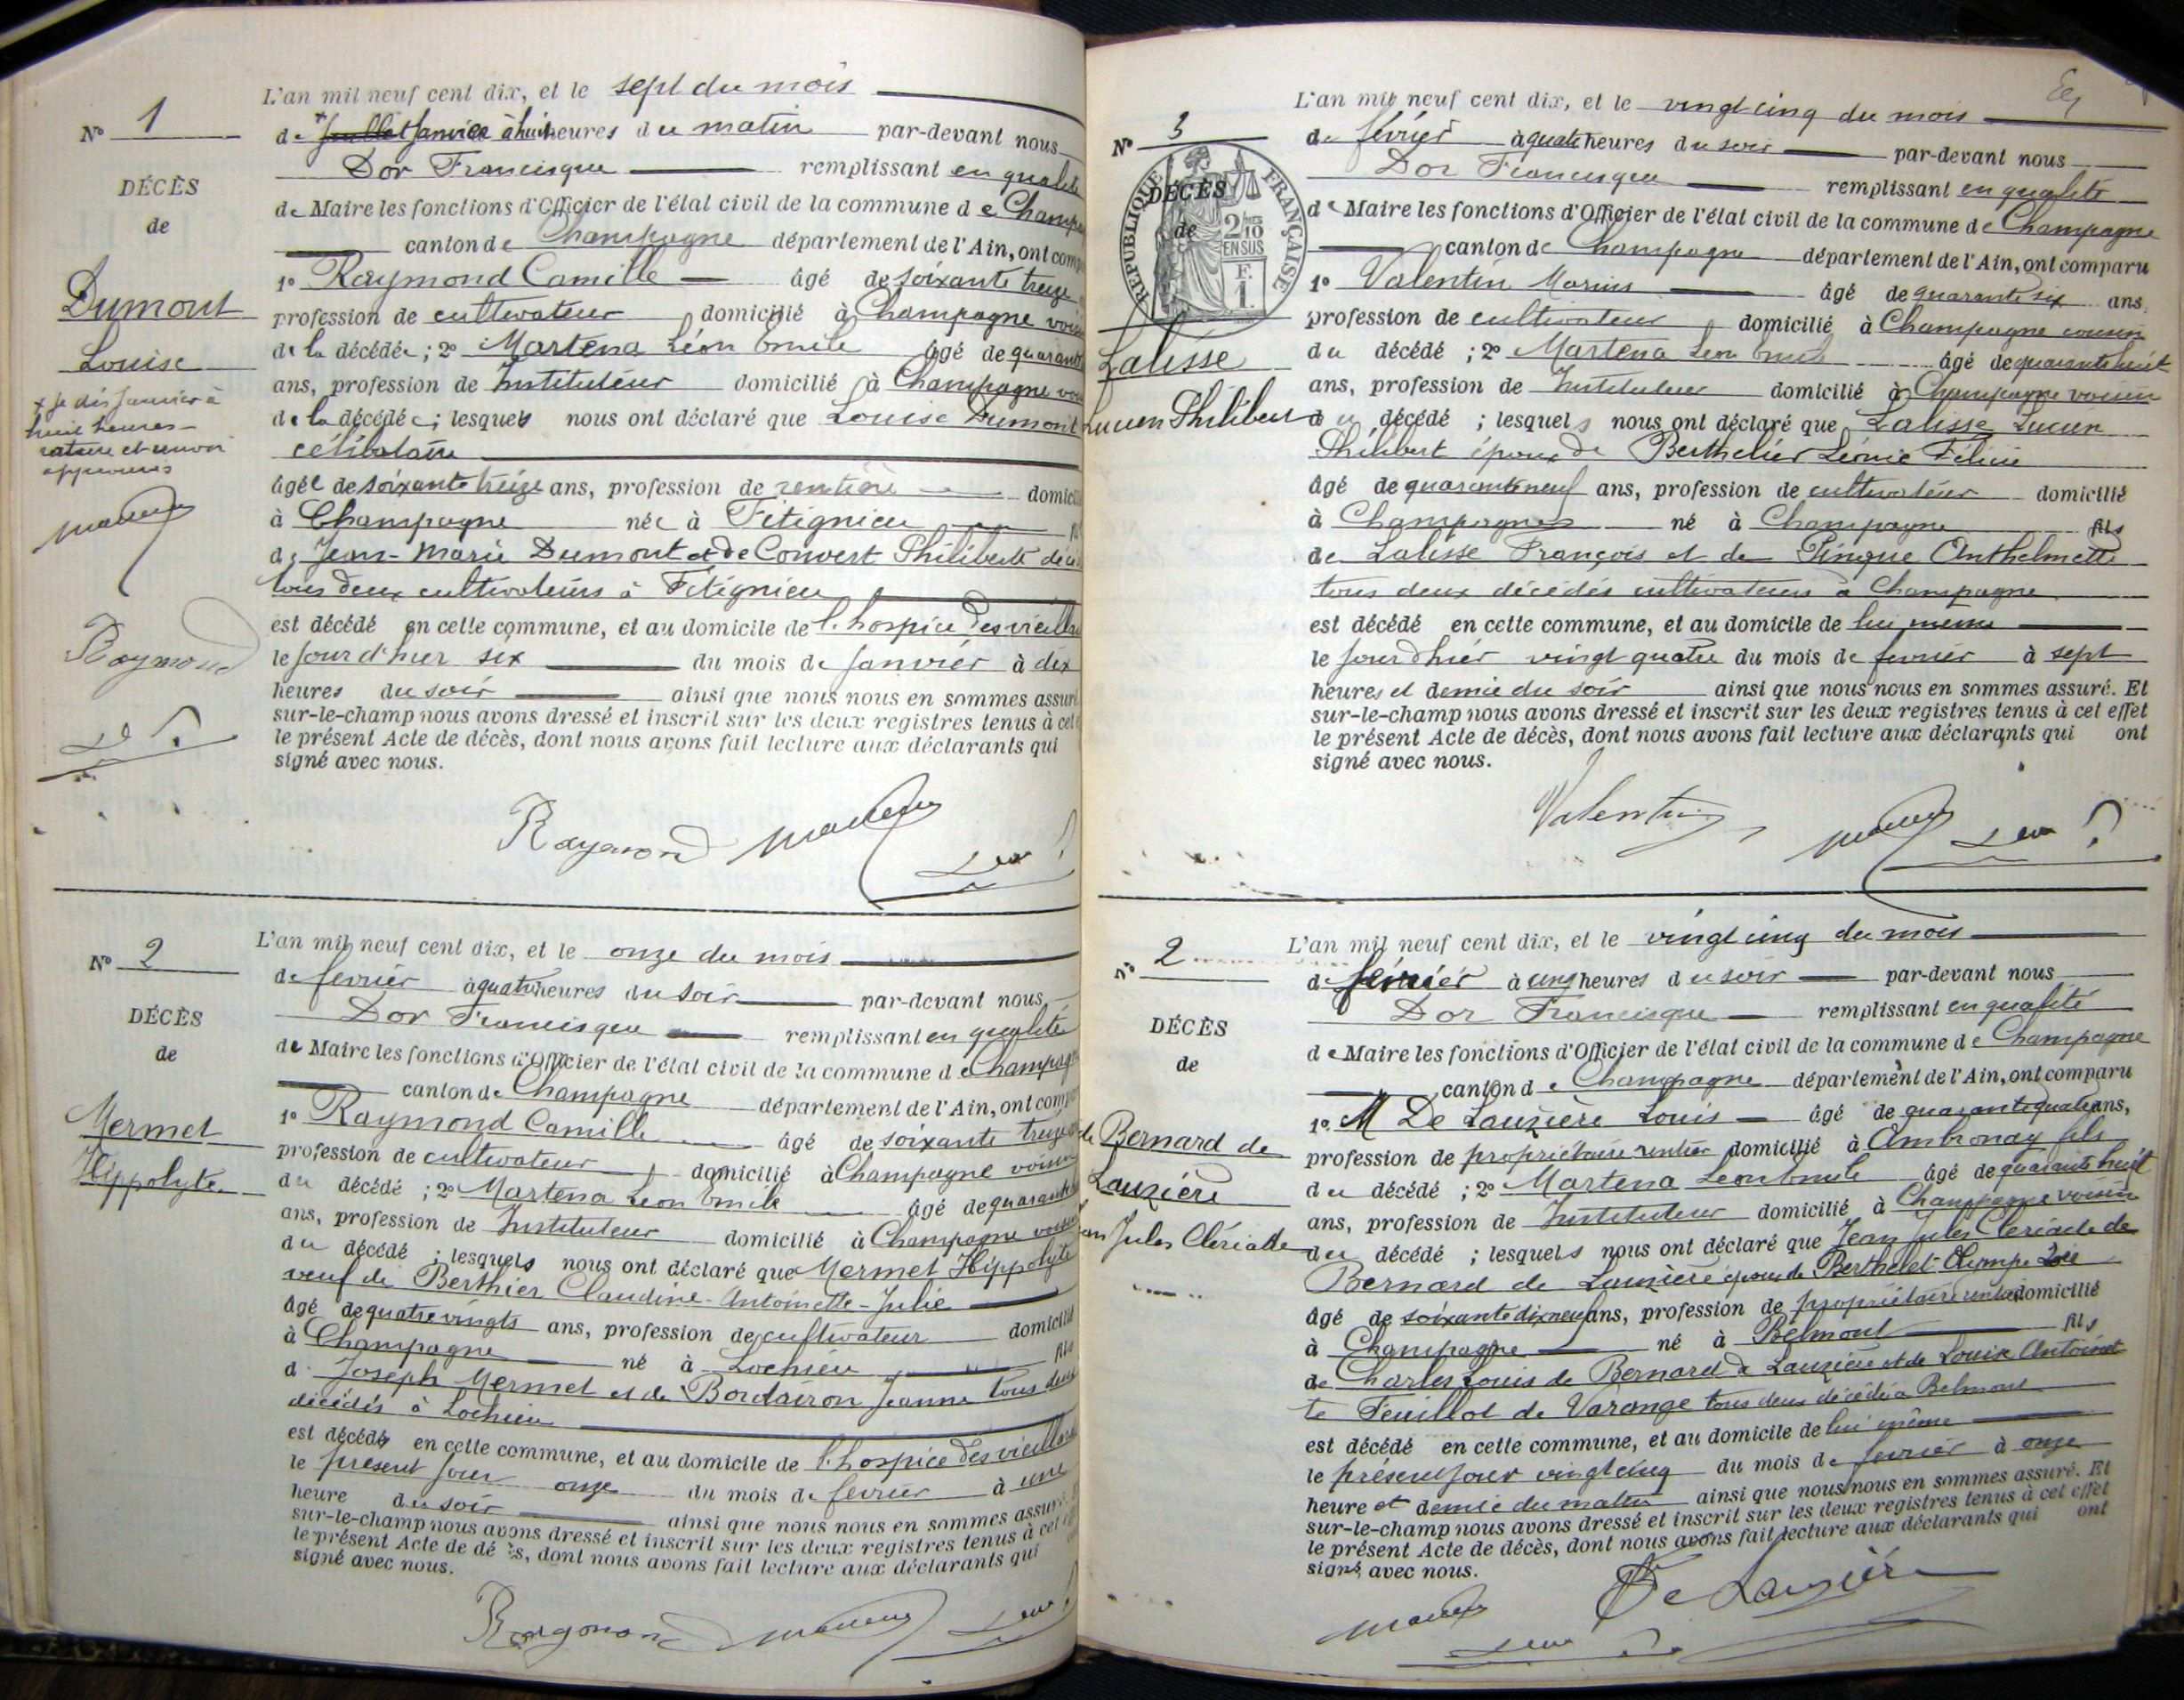 N° 1
DÉCÈS
de
Dumont
Louise
x Je dis Janvier à
huit heures
rature et renvoi
approuvés
Raymond
L'an mil neuf cent dix, et le sept du mois
de Juillet Janvier à huit heures du matin par-devant nous
Dor Francisque remplissant en qualité
de Maire les fonctions d'Officier de l'état civil de la commune de Champ
canton de Champagne département de l'Ain, ont comp
1° Raymond Camille âgé de soixante treize
profession de cultivateur domicilié à Champagne voisin
de la décédée; 2° Martena Léon Emile âgé de quarante
ans, profession de Instituteur domicilié à Champagne voi
de la décédée; lesquels nous ont déclaré que Louise Dumont
célibataire
âgée de soixante treize ans, profession de rentière domicil
à Champagne née à Fitignieu
de Jean-Marie Dumont et de Convert Philiberte décé
tous deux cultivateurs à Fitignieu
est décédé en cette commune, et au domicile de l'hospice des vieilla
le jour d'hier six du mois de Janvier à dix
heures du soir ainsi que nous nous en sommes assuré
sur-le-champ nous avons dressé et inscrit sur les deux registres tenus à cet e
le présent Acte de décès, dont nous avons fait lecture aux déclarants qui
signé avec nous.
Raymond
N° 2
DÉCÈS
de
Mermet
Hippolyte
L'an mil neuf cent dix, et le onze du mois
de fevrier à quatre heures du soir par-devant nous
Dor Francisque remplissant en qualité
de Maire les fonctions d'Officier de l'état civil de la commune de Champag
canton de Champagne département de l'Ain, ont comp
1° Raymond Camille âgé de soixante treize
profession de cultivateur domicilié à Champagne voisin
du décédé; 2° Martena Léon Emile âgé de quarante
ans, profession de Instituteur domicilié à Champagne voisin
du décédé; lesquels nous ont déclaré que Mermet Hippolyte
veuf de Berthier Claudine-Antoinette-Julie
âgé de quatre vingts ans, profession de cultivateur domicilié
à Champagne né à Lochieu fils
de Joseph Mermet et de Bordairon Jeanne tous deux
décédés à Lochieu
est décédé en cette commune, et au domicile de l'hospice des vieillards
le présent jour onze du mois de fevrier à une
heure du soir ainsi que nous nous en sommes assuré.
sur-le-champ nous avons dressé et inscrit sur les deux registres tenus à cet ef
le présent Acte de dé ès, dont nous avons fait lecture aux déclarants qui
signé avec nous.
Raymond
N° 3
RÉPUBLIQUE FRANÇAISE
2/10 EN SUS
F. 1
DÉCÈS
de
Lalisse
Lucien Philibert
L'an mil neuf cent dix, et le vingt cinq du mois
de février à quatre heures du soir par-devant nous
Dor Francisque remplissant en qualité
de Maire les fonctions d'Officier de l'état civil de la commune de Champagne
canton de Champagne département de l'Ain, ont comparu
1° Valentin Marius âgé de quarante six ans,
profession de cultivateur domicilié à Champagne cousin
du décédé; 2° Martena Leon Emile âgé de quarante huit
ans, profession de Instituteur domicilié à Champagne voisin
du décédé; lesquels nous ont déclaré que Lalisse Lucien
Philibert époux de Berthelier Léonie Félicie
âgé de quarante neuf ans, profession de cultivateur domicilié
à Champagne né à Champagne fils
de Lalisse François et de Pingue Anthelmette
tous deux décédés cultivateurs à Champagne
est décédé en cette commune, et au domicile de lui même
le jour d'hier vingt quatre du mois de fevrier à sept
heures et demie du soir ainsi que nous nous en sommes assuré. Et
sur-le-champ nous avons dressé et inscrit sur les deux registres tenus à cet effet
le présent Acte de décès, dont nous avons fait lecture aux déclarants qui ont
signé avec nous.
Valentin
N° 2
DÉCÈS
de
de Bernard de
Lauzière
Jean Jules Clériade
L'an mil neuf cent dix, et le vingt cinq du mois
de février à cinq heures du soir par-devant nous
Dor Francisque remplissant en qualité
de Maire les fonctions d'Officier de l'état civil de la commune de Champagne
canton de Champagne département de l'Ain, ont comparu
1° M De Lauzière Louis âgé de quarante quatre ans,
profession de propriétaire rentier domicilié à Ambronay fils
du décédé; 2° Martena Leon Emile âgé de quarante huit
ans, profession de Instituteur domicilié à Champagne voisin
du décédé; lesquels nous ont déclaré que Jean Jules Cleriade de
Bernard de Lauzière époux de Berthelet Olympe Zoé
âgé de soixante dix neuf ans, profession de propriétaire rentier domicilié
à Champagne né à Belmont fils
de Charles Louis de Bernard de Lauzière et de Louise Antoinet
te Feuillot de Varange tous deux décédés à Belmont
est décédé en cette commune, et au domicile de lui même
le présent jour vingt cinq du mois de fevrier à onze
heure et demie du matin ainsi que nous nous en sommes assuré. Et
sur-le-champ nous avons dressé et inscrit sur les deux registres tenus à cet effet
le présent Acte de décès, dont nous avons fait lecture aux déclarants qui ont
signé avec nous.
De Lauzière